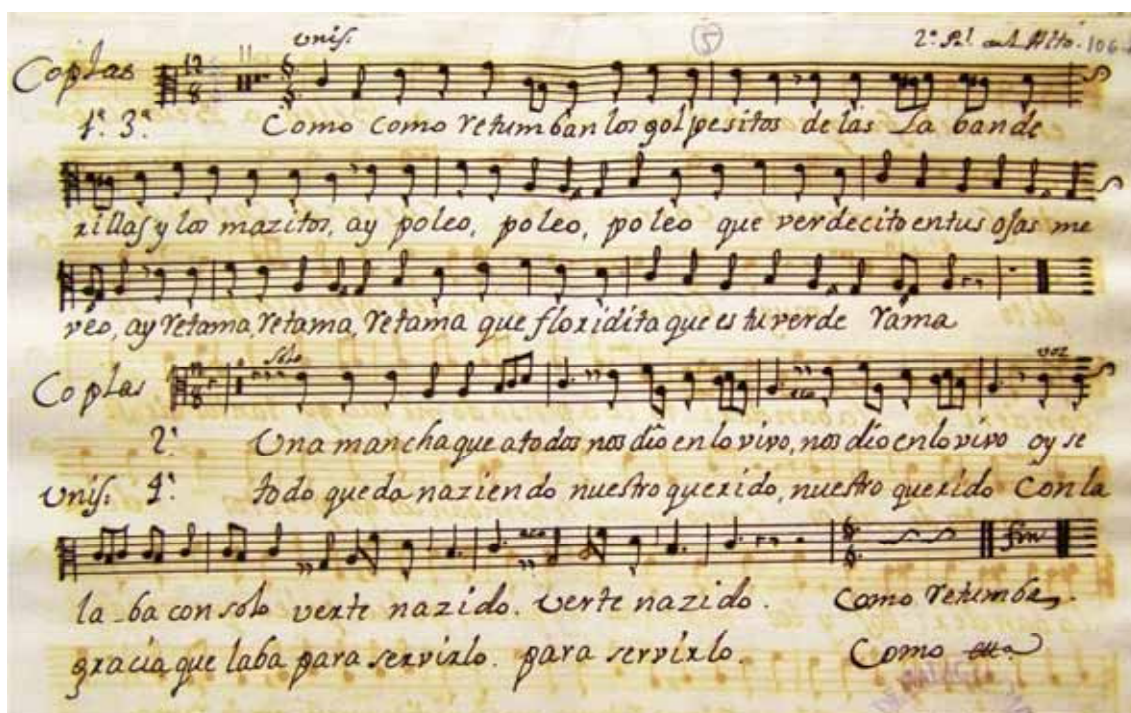 Unis. 5 2º Pl. al Alto. 106
Coplas
1ª. 3ª. Como como retumban los golpesitos de las La bande
rillas y los mazitos, ay poleo, poleo, poleo que verdecito en tus ojas me
veo, ay retama, retama, retama que floridita que es tu verde rama
Coplas solo voz
2ª Una mancha que a todos nos dio en lo vivo, nos dio en lo vivo oy se
Unis. 4ª todo queda naziendo nuestro querido, nuestro querido Con la
eco fin
la ba con solo verte nazido. verte nazido. Como retumba
gracia que laba para servirlo. para servirlo. Como